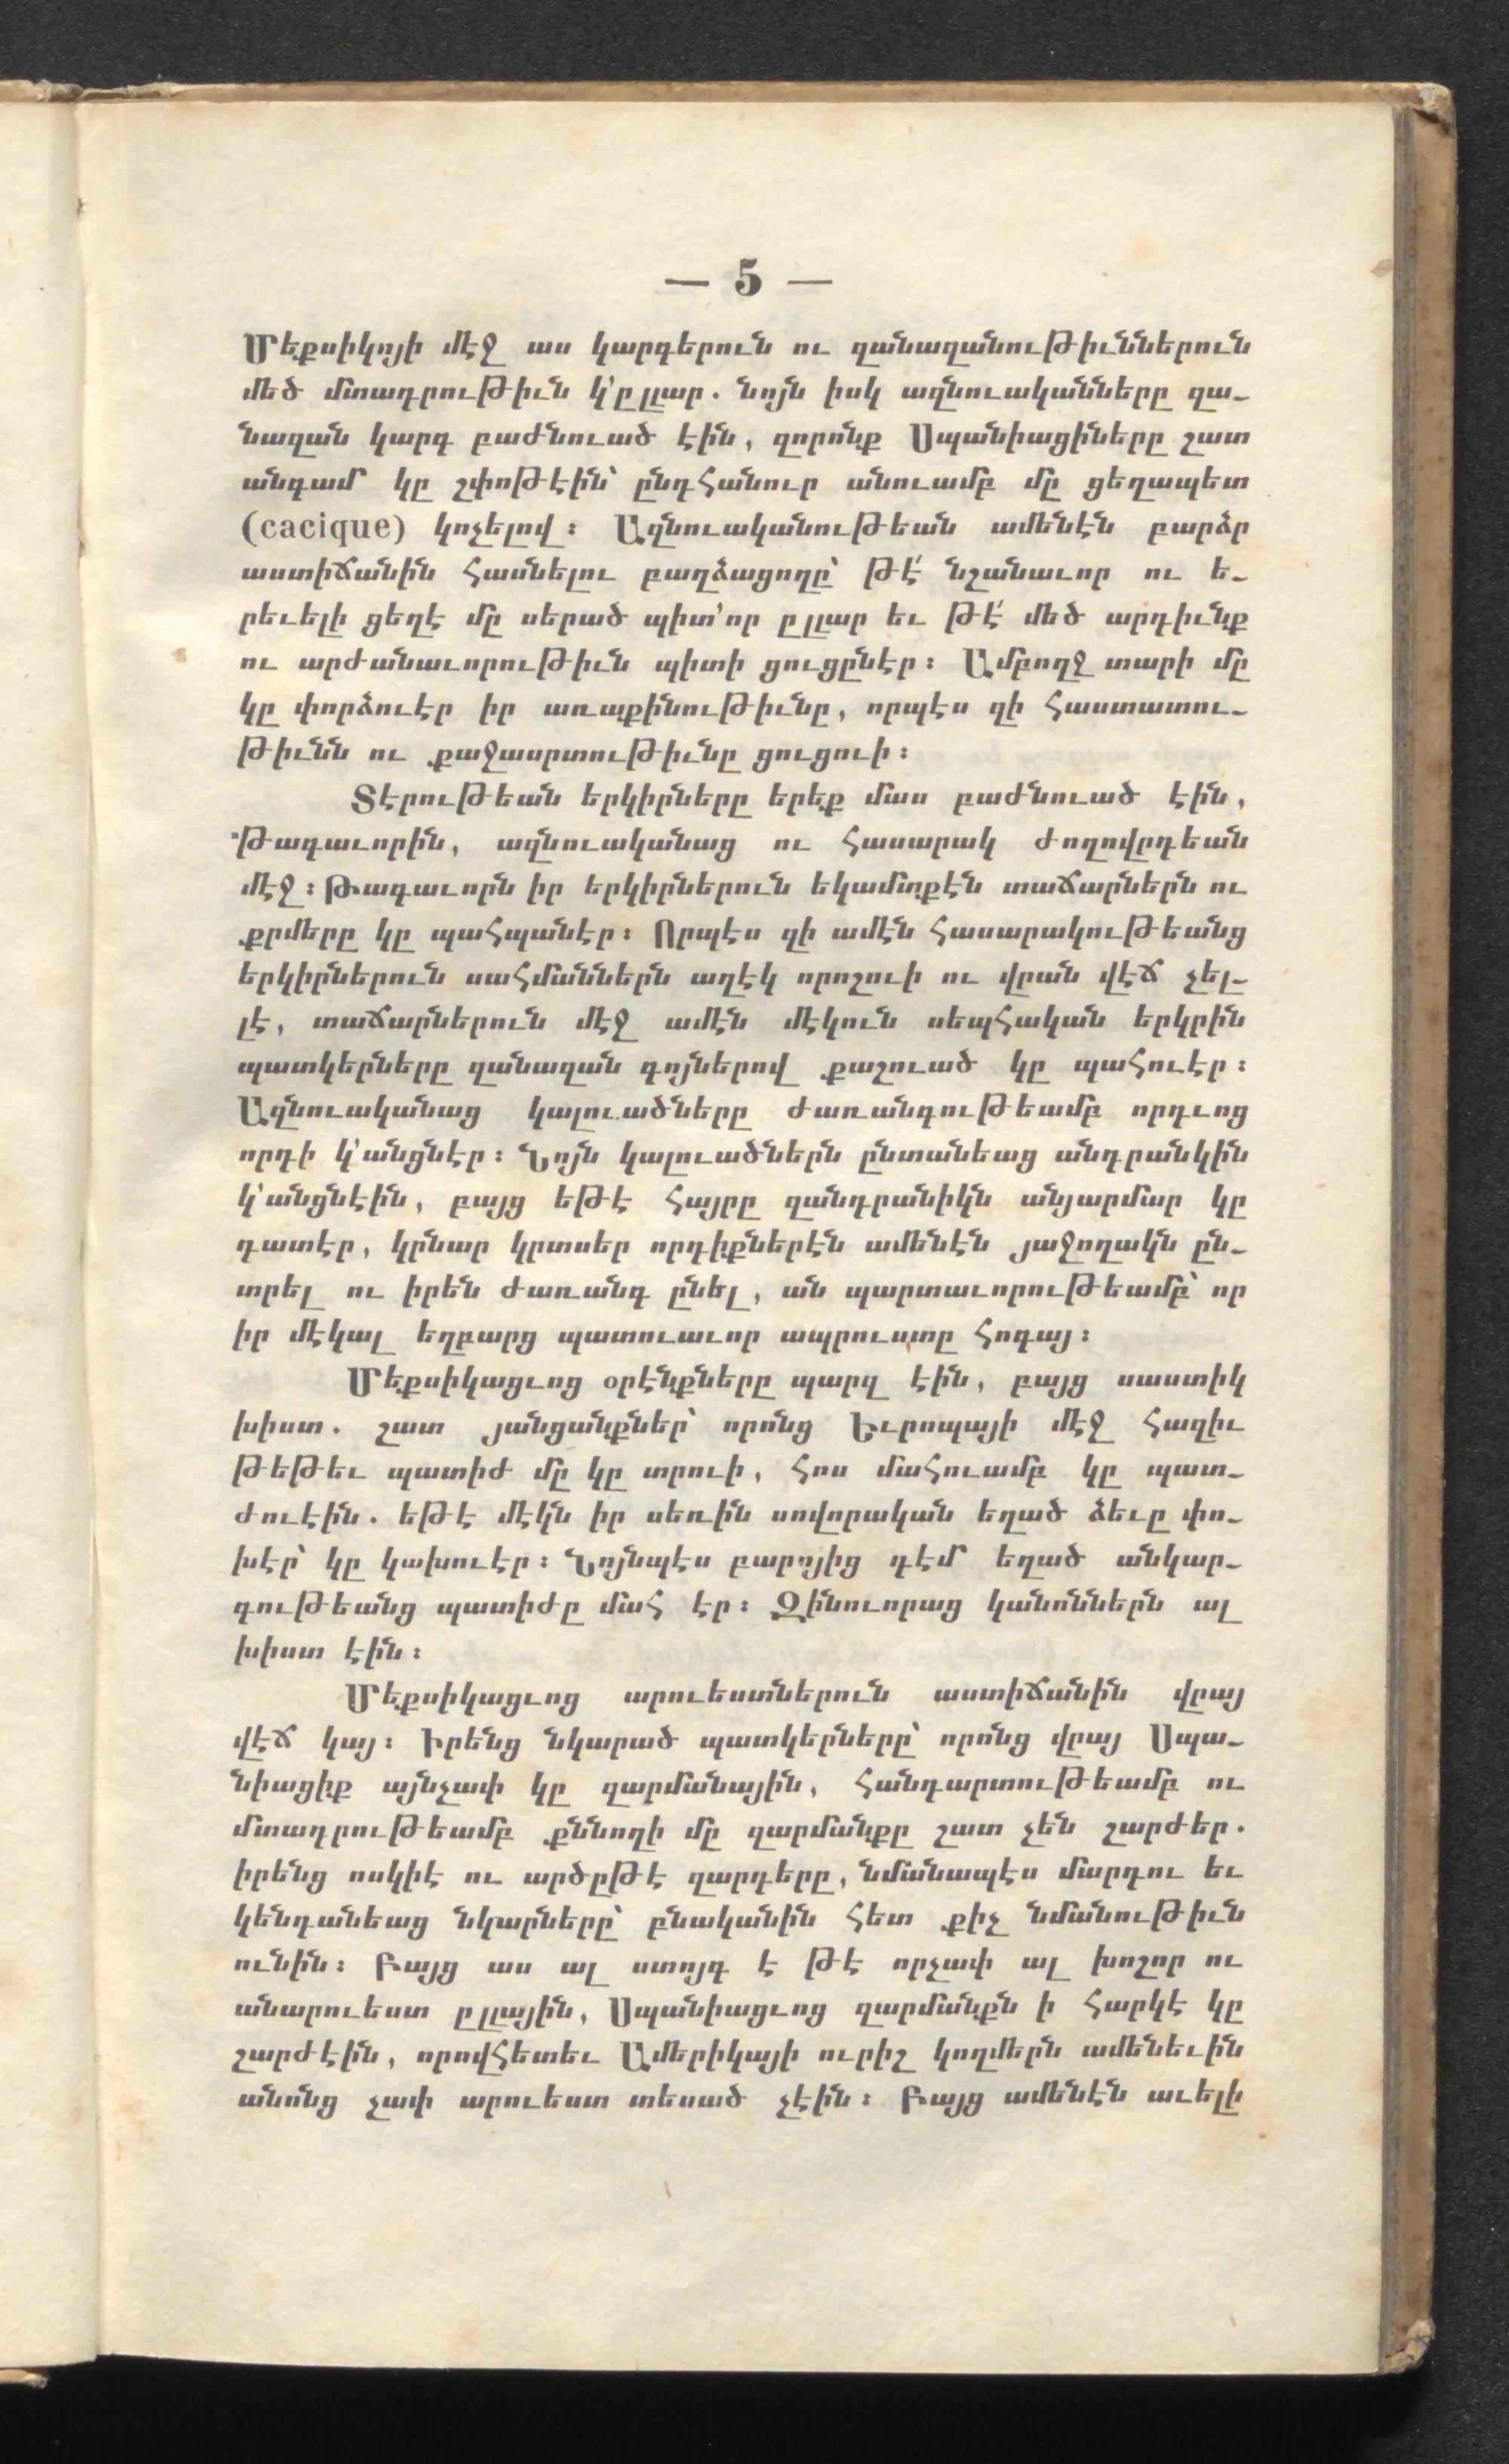 — 5 —
Մեքսիկոյի մէջ աս կարգերուն ու զանազանութիւններուն
մեծ մտադրութիւն կ՚ըլլար. նոյն իսկ ազնուականները զա-
նազան կարգ բաժնուած էին, զորոնք Սպանիացիները շատ
անգամ կը շփոթէին՝ ընդհանուր անուամբ մը ցեղապետ
(cacique) կոչելով։ Ազնուականութեան ամենէն բարձր
աստիճանին հասնելու բաղձացողը՝ թէ՛ նշանաւոր ու ե-
րեւելի ցեղէ մը սերած պիտ՚որ ըլլար եւ թէ՛ մեծ արդիւնք
ու արժանաւորութիւն պիտի ցուցընէր։ Ամբողջ տարի մը
կը փորձուէր իր առաքինութիւնը, որպէս զի հաստատու-
թիւնն ու քաջասրտութիւնը ցուցուի։
Տէրութեան երկիրները երեք մաս բաժնուած էին,
թագաւորին, ազնուականաց ու հասարակ ժողովրդեան
մէջ։ Թագաւորն իր երկիրներուն եկամտքէն տաճարներն ու
քրմերը կը պահպանէր։ Որպէս զի ամէն հասարակութեանց
երկիրներուն սահմաններն աղէկ որոշուի ու վրան վէճ չել-
լէ, տաճարներուն մէջ ամէն մէկուն սեպհական երկրին
պատկերները զանազան գոյներով քաշուած կը պահուէր։
Ազնուականաց կալուածները ժառանգութեամբ որդւոց
որդի կ՚անցնէր։ Նոյն կալուածներն ընտանեաց անդրանկին
կ՚անցնէին, բայց եթէ հայրը զանդրանիկն անյարմար կը
դատէր, կրնար կրտսեր որդիքներէն ամենէն յաջողակն ըն-
տրել ու իրեն ժառանգ ընել, ան պարտաւորութեամբ՝ որ
իր մէկալ եղբարց պատուաւոր ապրուստը հոգայ։
Մեքսիկացւոց օրէնքները պարզ էին, բայց սաստիկ
խիստ. շատ յանցանքներ՝ որոնց Եւրոպայի մէջ հազիւ
թեթեւ պատիժ մը կը տրուի, հոս մահուամբ կը պատ-
ժուէին. եթէ մէկն իր սեռին սովորական եղած ձեւը փո-
խէր՝ կը կախուէր։ Նոյնպէս բարոյից դէմ եղած անկար-
գութեանց պատիժը մահ էր։ Զինուորաց կանոններն ալ
խիստ էին։
Մեքսիկացւոց արուեստներուն աստիճանին վրայ
վէճ կայ։ Իրենց նկարած պատկերները՝ որոնց վրայ Սպա-
նիացիք այնչափ կը զարմանային, հանդարտութեամբ ու
մտադրութեամբ քննողի մը զարմանքը շատ չեն շարժեր.
իրենց ոսկիէ ու արծըթէ զարդերը, նմանապէս մարդու եւ
կենդանեաց նկարները՝ բնականին հետ քիչ նմանութիւն
ունին։ Բայց աս ալ ստոյգ է թէ որչափ ալ խոշոր ու
անարուեստ ըլլային, Սպանիացւոց զարմանքն ի հարկէ կը
շարժէին, որովհետեւ Ամերիկայի ուրիշ կողմերն ամենեւին
անոնց չափ արուեստ տեսած չէին։ Բայց ամենէն աւելի